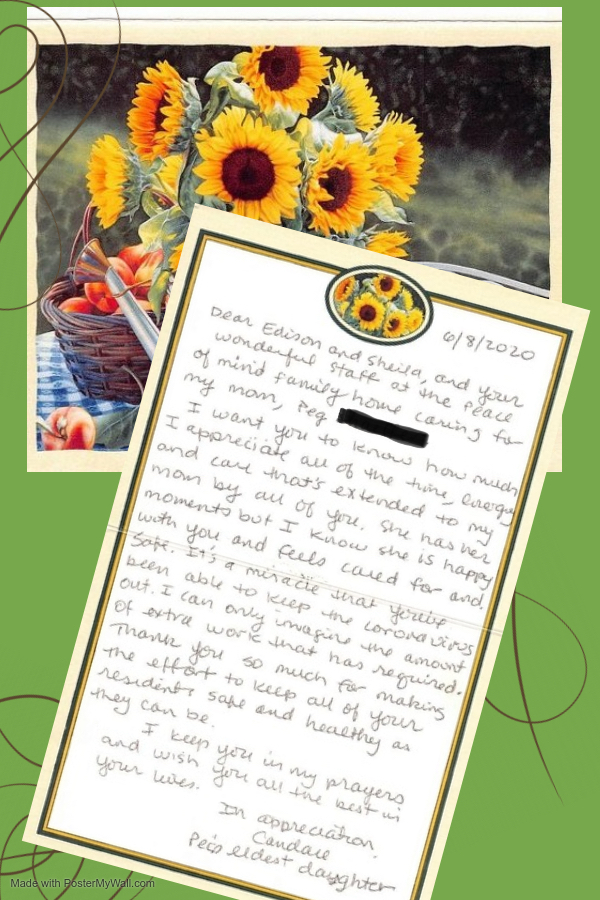 6/8/2020
Dear Edison and Sheila, and your
wonderful staff at the Peace
of mind family home caring for
my mom, Peg
I want you to know how much
I appreciate all of the time, energy
and care that's extended to my
mom by all of you. She has her
moments but I know she is happy
with you and feels cared for and
safe. It's a miracle that you've
been able to keep the corona virus
out. I can only imagine the amount
of extra work that has required.
Thank you so much for making
the effort to keep all of your
residents safe and healthy as
they can be.
I keep you in my prayers
and wish you all the best in
your lives.
In appreciation,
Candace
Peg's eldest daughter
Made with PosterMyWall.com